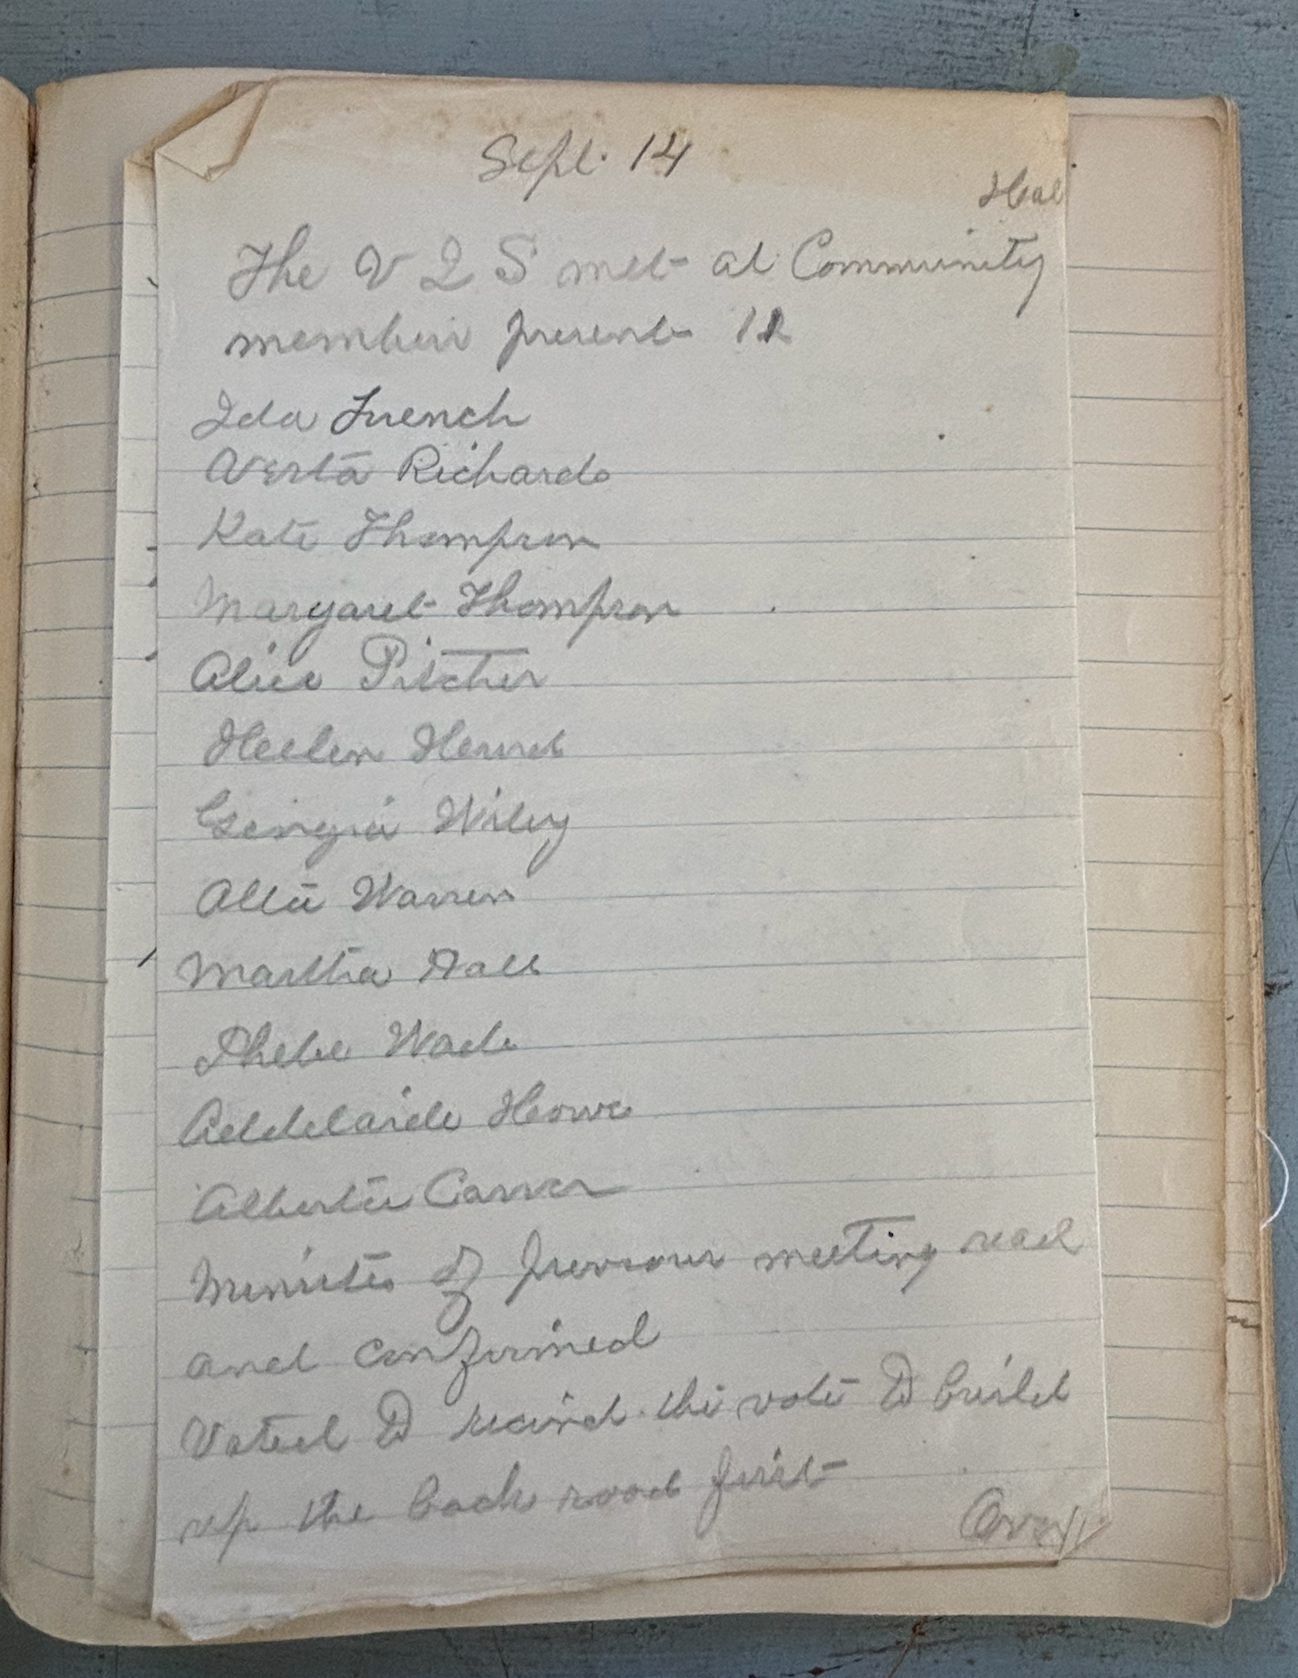 Sept. 14
Hall
The V I S met at Community
members present 12
Ida French
Versta Richards
Kate Thompson
Margaret Thompson
Alice Pitcher
Heelen
Georgia Wiley
Allie Warren
Martha Hall
Phebe Wade
Addelaide Howe
Alberta Carver
Minutes of previous meeting read
and confirmed
Voted to recind the vote to build
up the back road first
Over